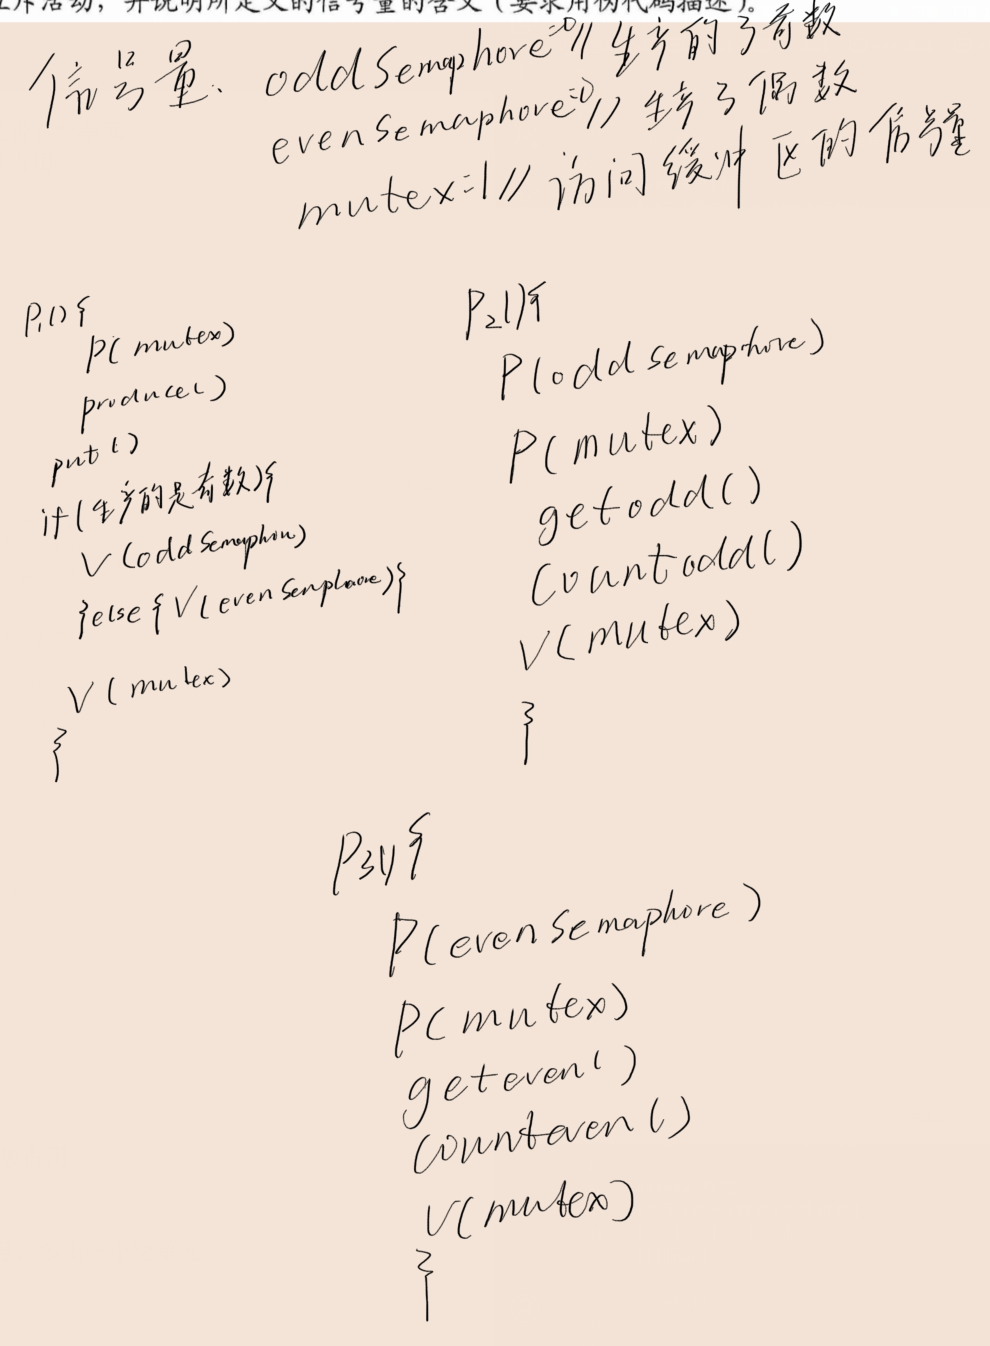 工作活动，并说明所定义的信号量的含义（要求用伪代码描述）。
信号量、oddSemaphore=0//生产的了奇数
evensemaphore=0//生产了偶数
mutex=1//访问缓冲区的信号量
P1(){
P(mutex)
produce()
put()
if(生产的是奇数){
V(oddSemaphore)
}else{V(evenSemphaore)}
V(mutex)
}
P2(){
P(oddsemaphore)
P(mutex)
getodd()
countodd()
V(mutex)
}
P3(){
P(evenSemaphore)
P(mutex)
geteven()
counteven()
V(mutex)
}